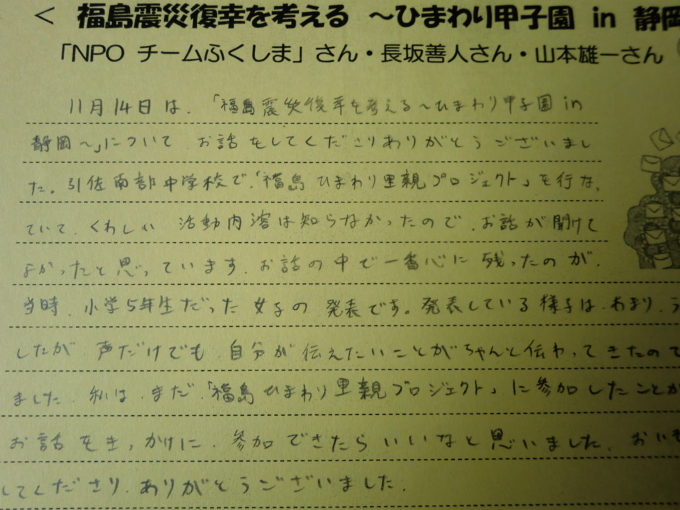 < 福島震災復幸を考える ～ひまわり甲子園 in 静岡
「NPO チームふくしま」さん・長坂善人さん・山本雄一さん
11月14日は、「福島震災復幸を考える～ひまわり甲子園in
静岡～」について お話をしてくださりありがとうございまし
た。引佐南部中学校で、「福島 ひまわり里親プロジェクト」を行なっ
ていて、くわしい 活動内溶は知らなかったので、お話が聞けて
よかったと思っています。お話の中で一番心に残ったのが、
当時、小学5年生だった女子の発表です。発表している様子は、あまり、
したが 声だけでも、自分が伝えたいことがちゃんと伝わってきたので
ました。私は、まだ、「福島 ひまわり里親プロジェクト」に参加したことが
お話をきっかけに、参加できたらいいなと思いました。
してくださり、ありがとうございました。